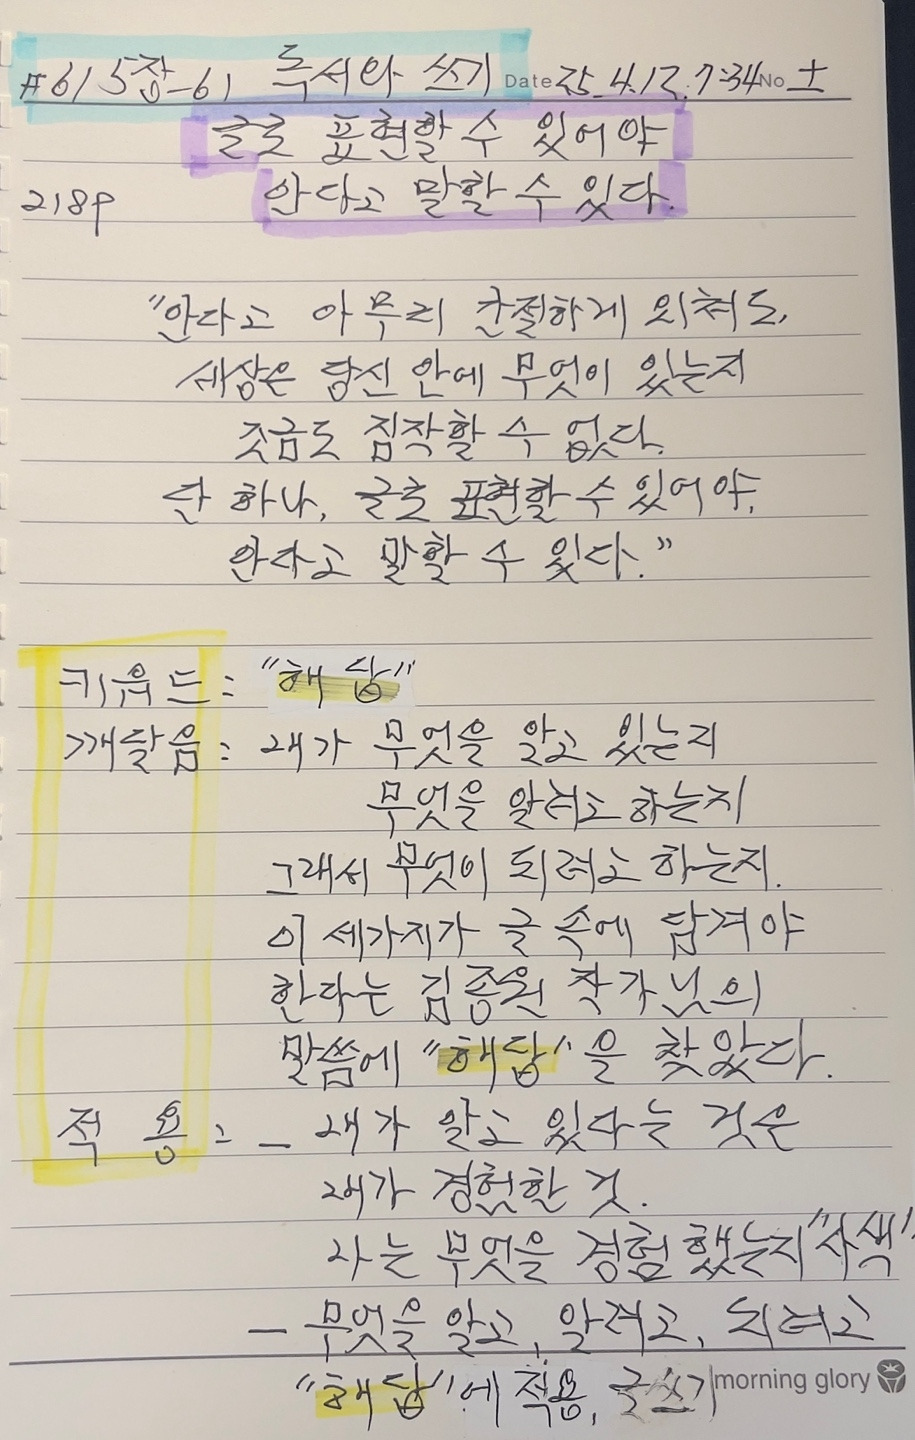 #61 5장-61 독서와 쓰기 Date 25.4.12.7:34 No 土
글로 표현할 수 있어야
218p 안다고 말할 수 있다.
"안다고 아무리 간절하게 외쳐도,
세상은 당신 안에 무엇이 있는지
조금도 짐작할 수 없다.
단 하나, 글로 표현할 수 있어야,
안다고 말할 수 있다."
키워드 : "해답"
깨달음 : 내가 무엇을 알고 있는지
무엇을 알려고 하는지
그래서 무엇이 되려고 하는지.
이 세가지가 글 속에 담겨야
한다는 김종원 작가님의
말씀에 "해답"을 찾았다.
적 용 : - 내가 알고 있다는 것은
내가 경험한 것.
나는 무엇을 경험했는지 "사색"
- 무엇을 알고, 알려고, 되려고
"해답"에 적용, 글쓰기
morning glory